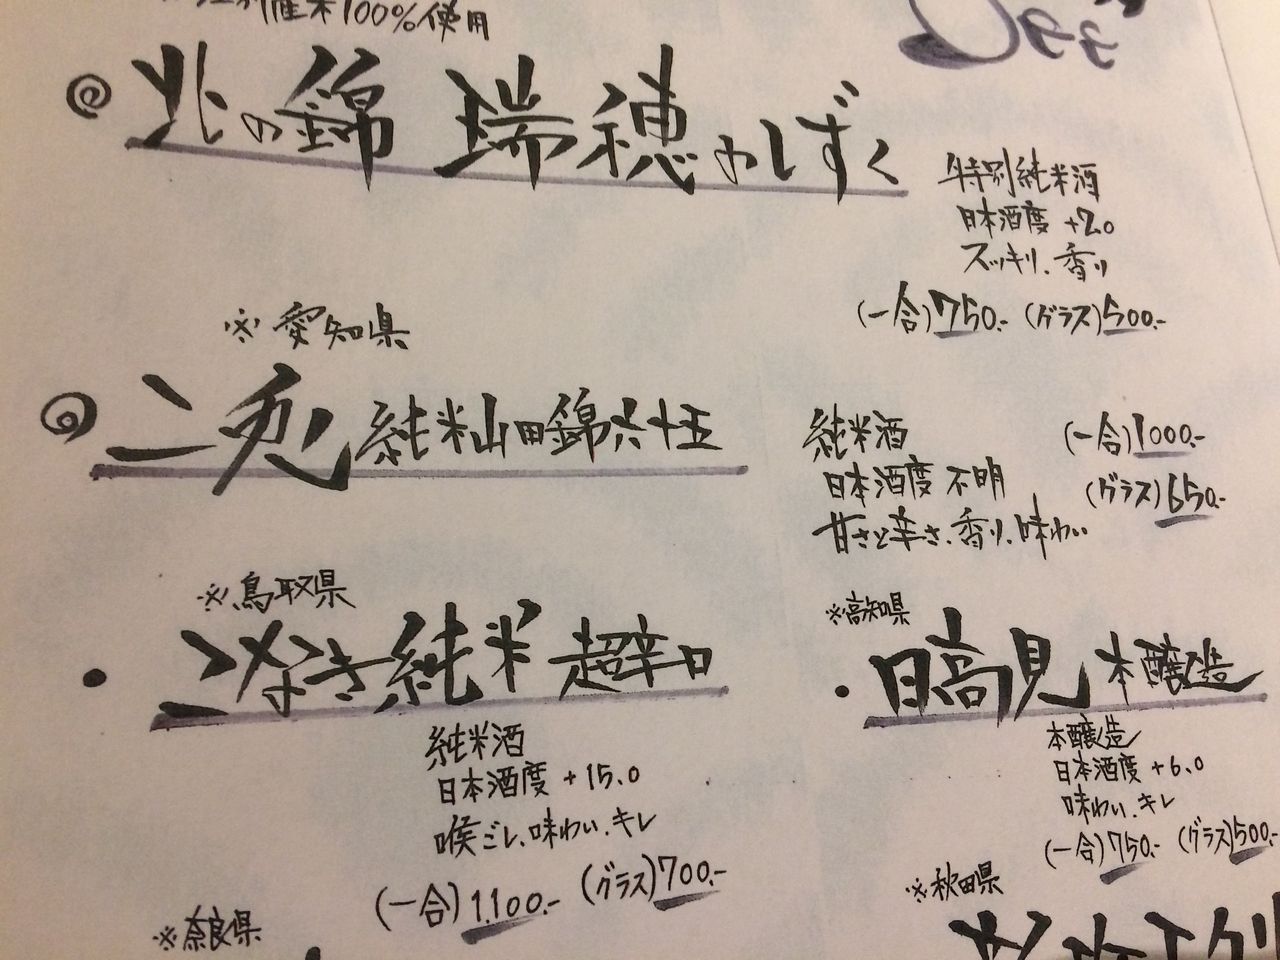 産米100%使用
北の錦 瑞穂のしずく
特別純米酒
日本酒度 +2.0
スッキリ、香り
(一合)750.- (グラス)500.-
※愛知県
二兎 純米山田錦六十五
純米酒
日本酒度 不明
甘さと辛さ、香り、味わい
(一合)1000.-
(グラス)650.-
※鳥取県
・こなき純米 超辛口
純米酒
日本酒度 +15.0
喉ごし、味わい、キレ
(一合)1,100.- (グラス)700.-
※高知県
・日高見 本醸造
本醸造
日本酒度 +6.0
味わい、キレ
(一合)750.- (グラス)500.-
※奈良県
※秋田県